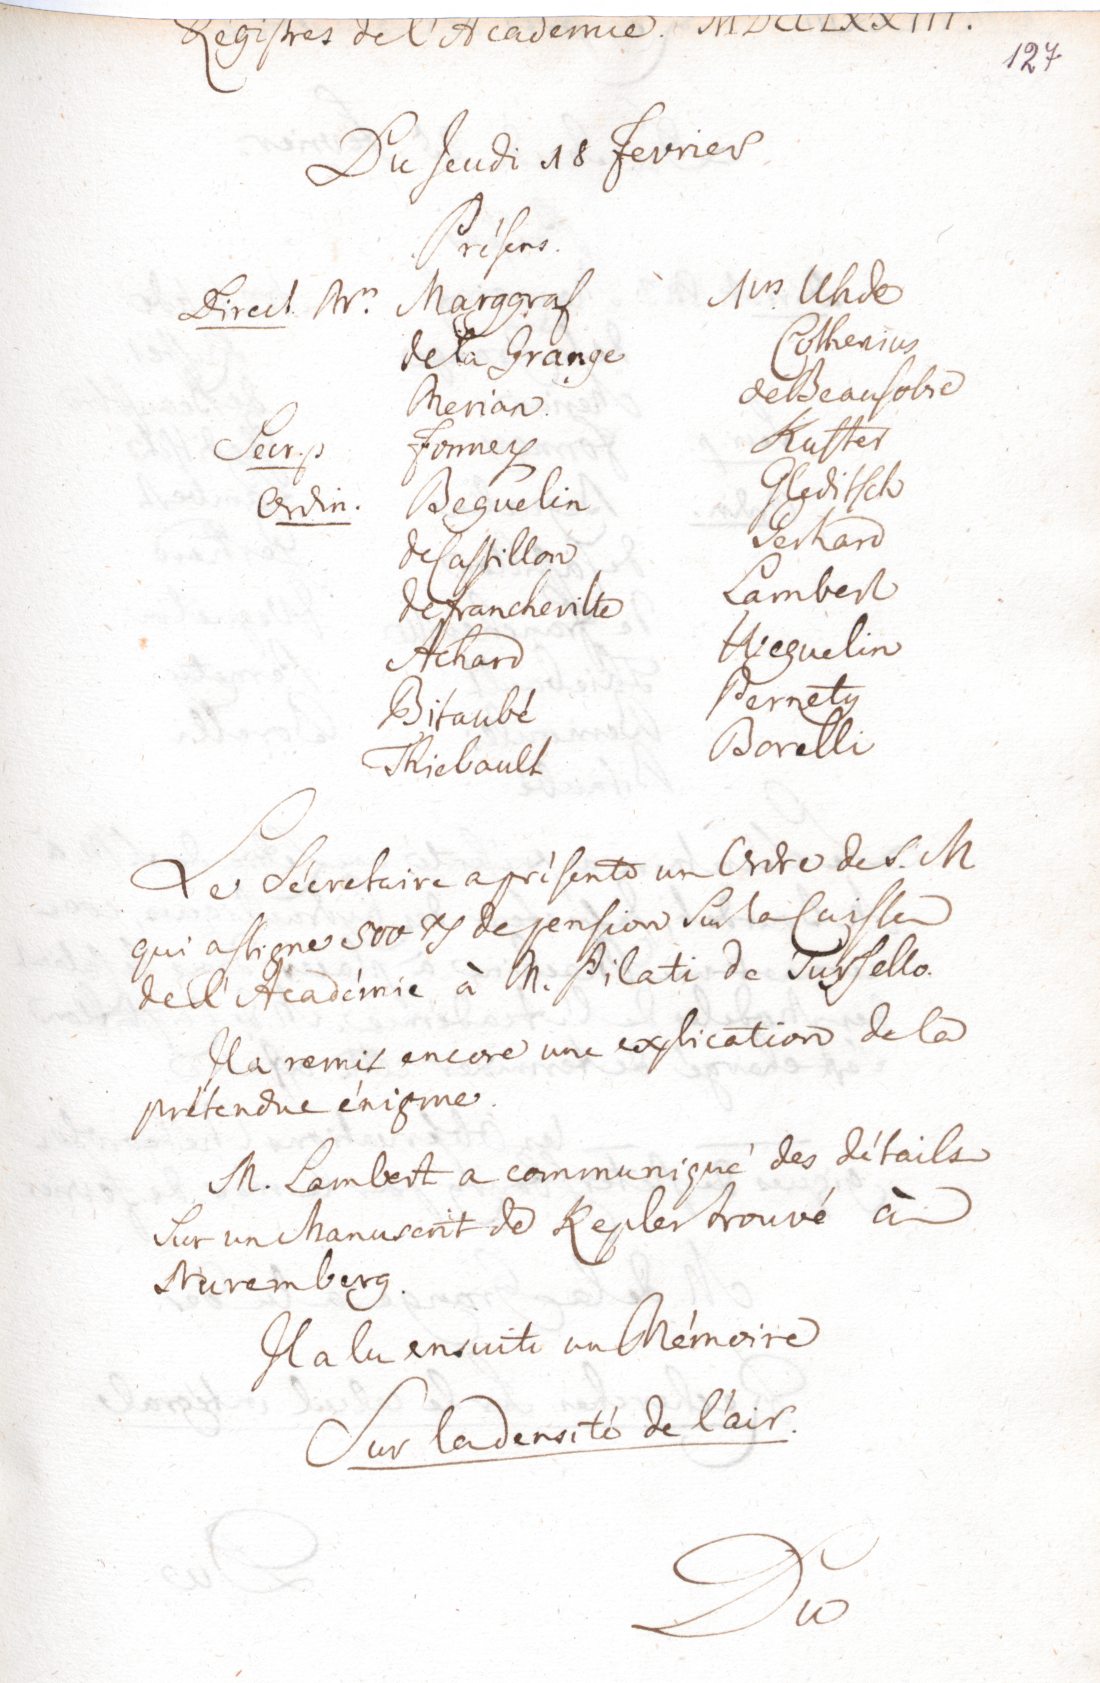 Régistres de l'Academie. MDCCLXXIII.
127
Du Jeudi 18 Fevrier
Présens.
Direct. Mrs. Marggraf
de la Grange
Merian.
Secr. p Formey
Ordin. Beguelin
de Castillon
de Francheville
Achard
Bitaubé
Thiebault
Mrs. Uhde
Cothenius
de Beausobre
Kuster
Gleditsch
Gerhard
Lambert
Weguelin
Pernety
Borelli
Le Sécretaire a présenté un Ordre de S. M
qui assigne 500 de pension sur la Caisse
de l'Académie à M. Pilati de Tassello.
Il a remis encore une explication de la
prétendue énigme.
M. Lambert a communiqué des détails
sur un Manuscrit de Kepler trouvé à
Nuremberg.
Il a lu ensuite un Mémoire
Sur la densité de l'air.
Du